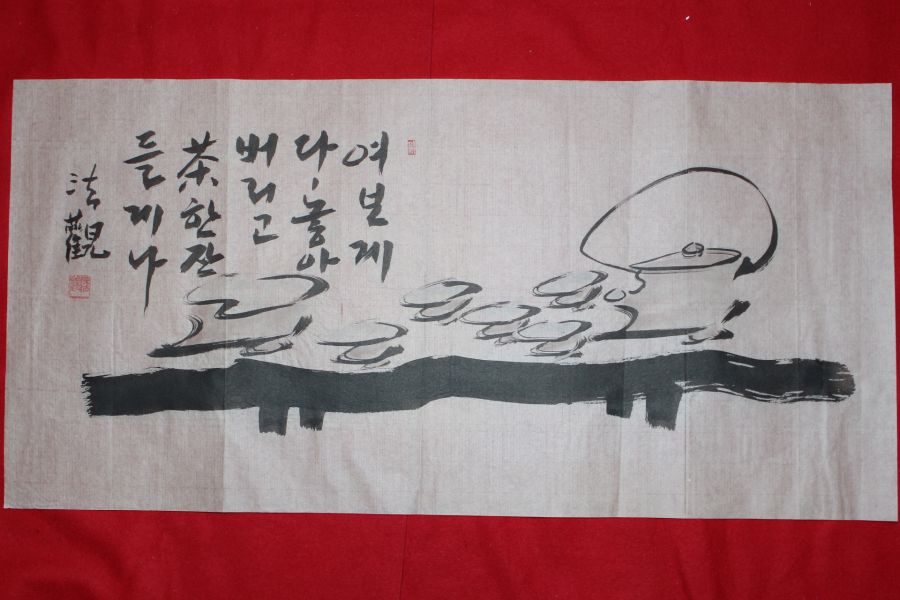 여보게
다 놓아
버리고
茶 한 잔
들게나
法觀